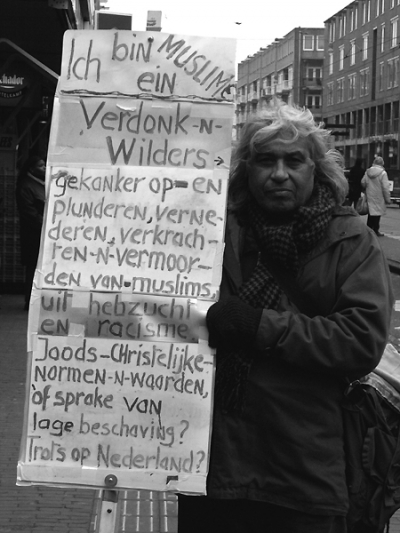 Ich bin MUSLIME
ein
Verdonk-n-
Wilders →
gekanker op- en
plunderen, verne-
deren, verkrach-
ten-n-vermoor-
den van muslims,
uit hebzucht
en racisme
Joods-Christelijke-
normen-n-waarden,
of sprake van
lage beschaving?
Trots op Nederland?